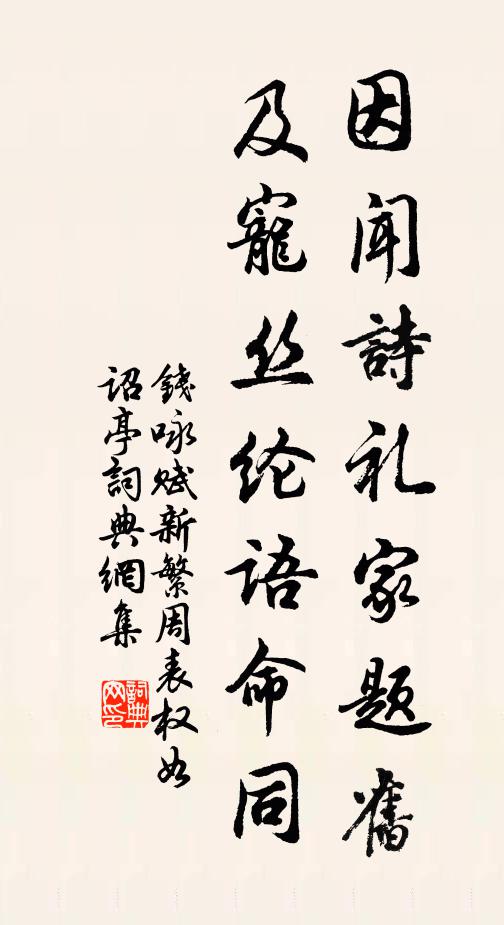 因闻詩礼家题舊
及寵丝纶语命同
錢咏赋新繁周表权如
詔亭詞典網集
詞典网印